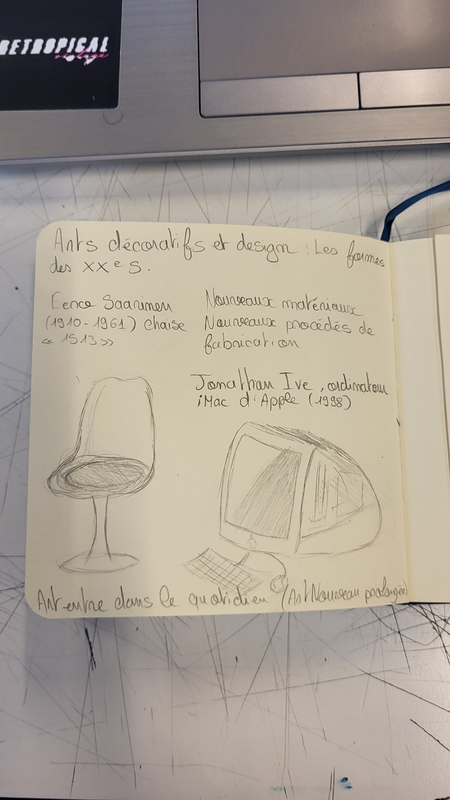 RETROPICAL
Arts décoratifs et design : Les formes
des XXe s.
Eence Saarinen
(1910-1961) chaise
« 1513 »
Nouveaux matériaux
Nouveaux procédés de
fabrication
Jonathan Ive, ordinateur
iMac d'Apple (1998)
Art entre dans le quotidien (Art Nouveau prolongée)